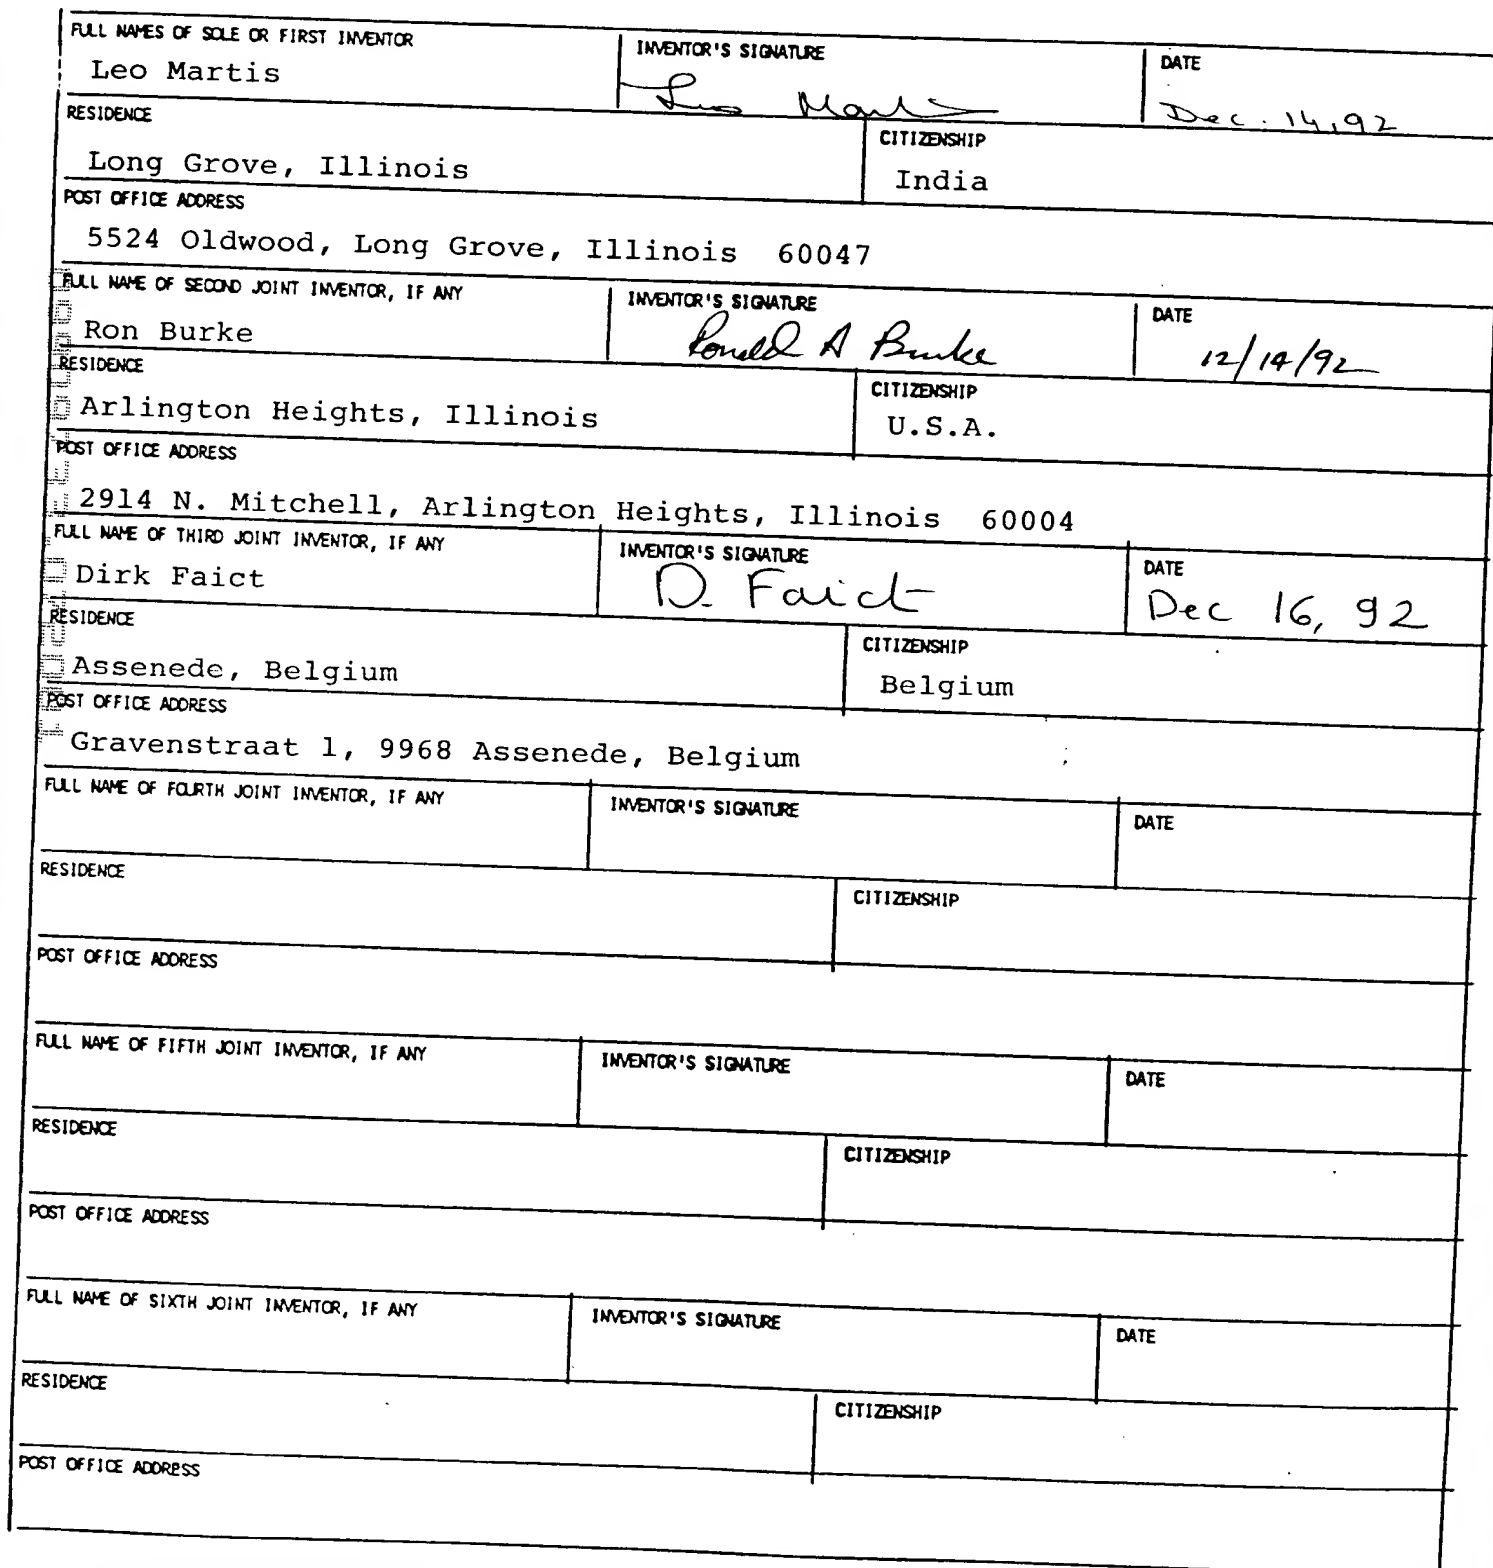 FULL NAMES OF SOLE OR FIRST INVENTOR INVENTOR'S SIGNATURE DATE
Leo Martis Leo Martis Dec. 14, 92
RESIDENCE CITIZENSHIP
Long Grove, Illinois India
POST OFFICE ADDRESS
5524 Oldwood, Long Grove, Illinois 60047
FULL NAME OF SECOND JOINT INVENTOR, IF ANY INVENTOR'S SIGNATURE DATE
Ron Burke Ronald A Burke 12/14/92
RESIDENCE CITIZENSHIP
Arlington Heights, Illinois U.S.A.
POST OFFICE ADDRESS
2914 N. Mitchell, Arlington Heights, Illinois 60004
FULL NAME OF THIRD JOINT INVENTOR, IF ANY INVENTOR'S SIGNATURE DATE
Dirk Faict D. Faict Dec 16, 92
RESIDENCE CITIZENSHIP
Assenede, Belgium Belgium
POST OFFICE ADDRESS
Gravenstraat 1, 9968 Assenede, Belgium
FULL NAME OF FOURTH JOINT INVENTOR, IF ANY INVENTOR'S SIGNATURE DATE
RESIDENCE CITIZENSHIP
POST OFFICE ADDRESS
FULL NAME OF FIFTH JOINT INVENTOR, IF ANY INVENTOR'S SIGNATURE DATE
RESIDENCE CITIZENSHIP
POST OFFICE ADDRESS
FULL NAME OF SIXTH JOINT INVENTOR, IF ANY INVENTOR'S SIGNATURE DATE
RESIDENCE CITIZENSHIP
POST OFFICE ADDRESS